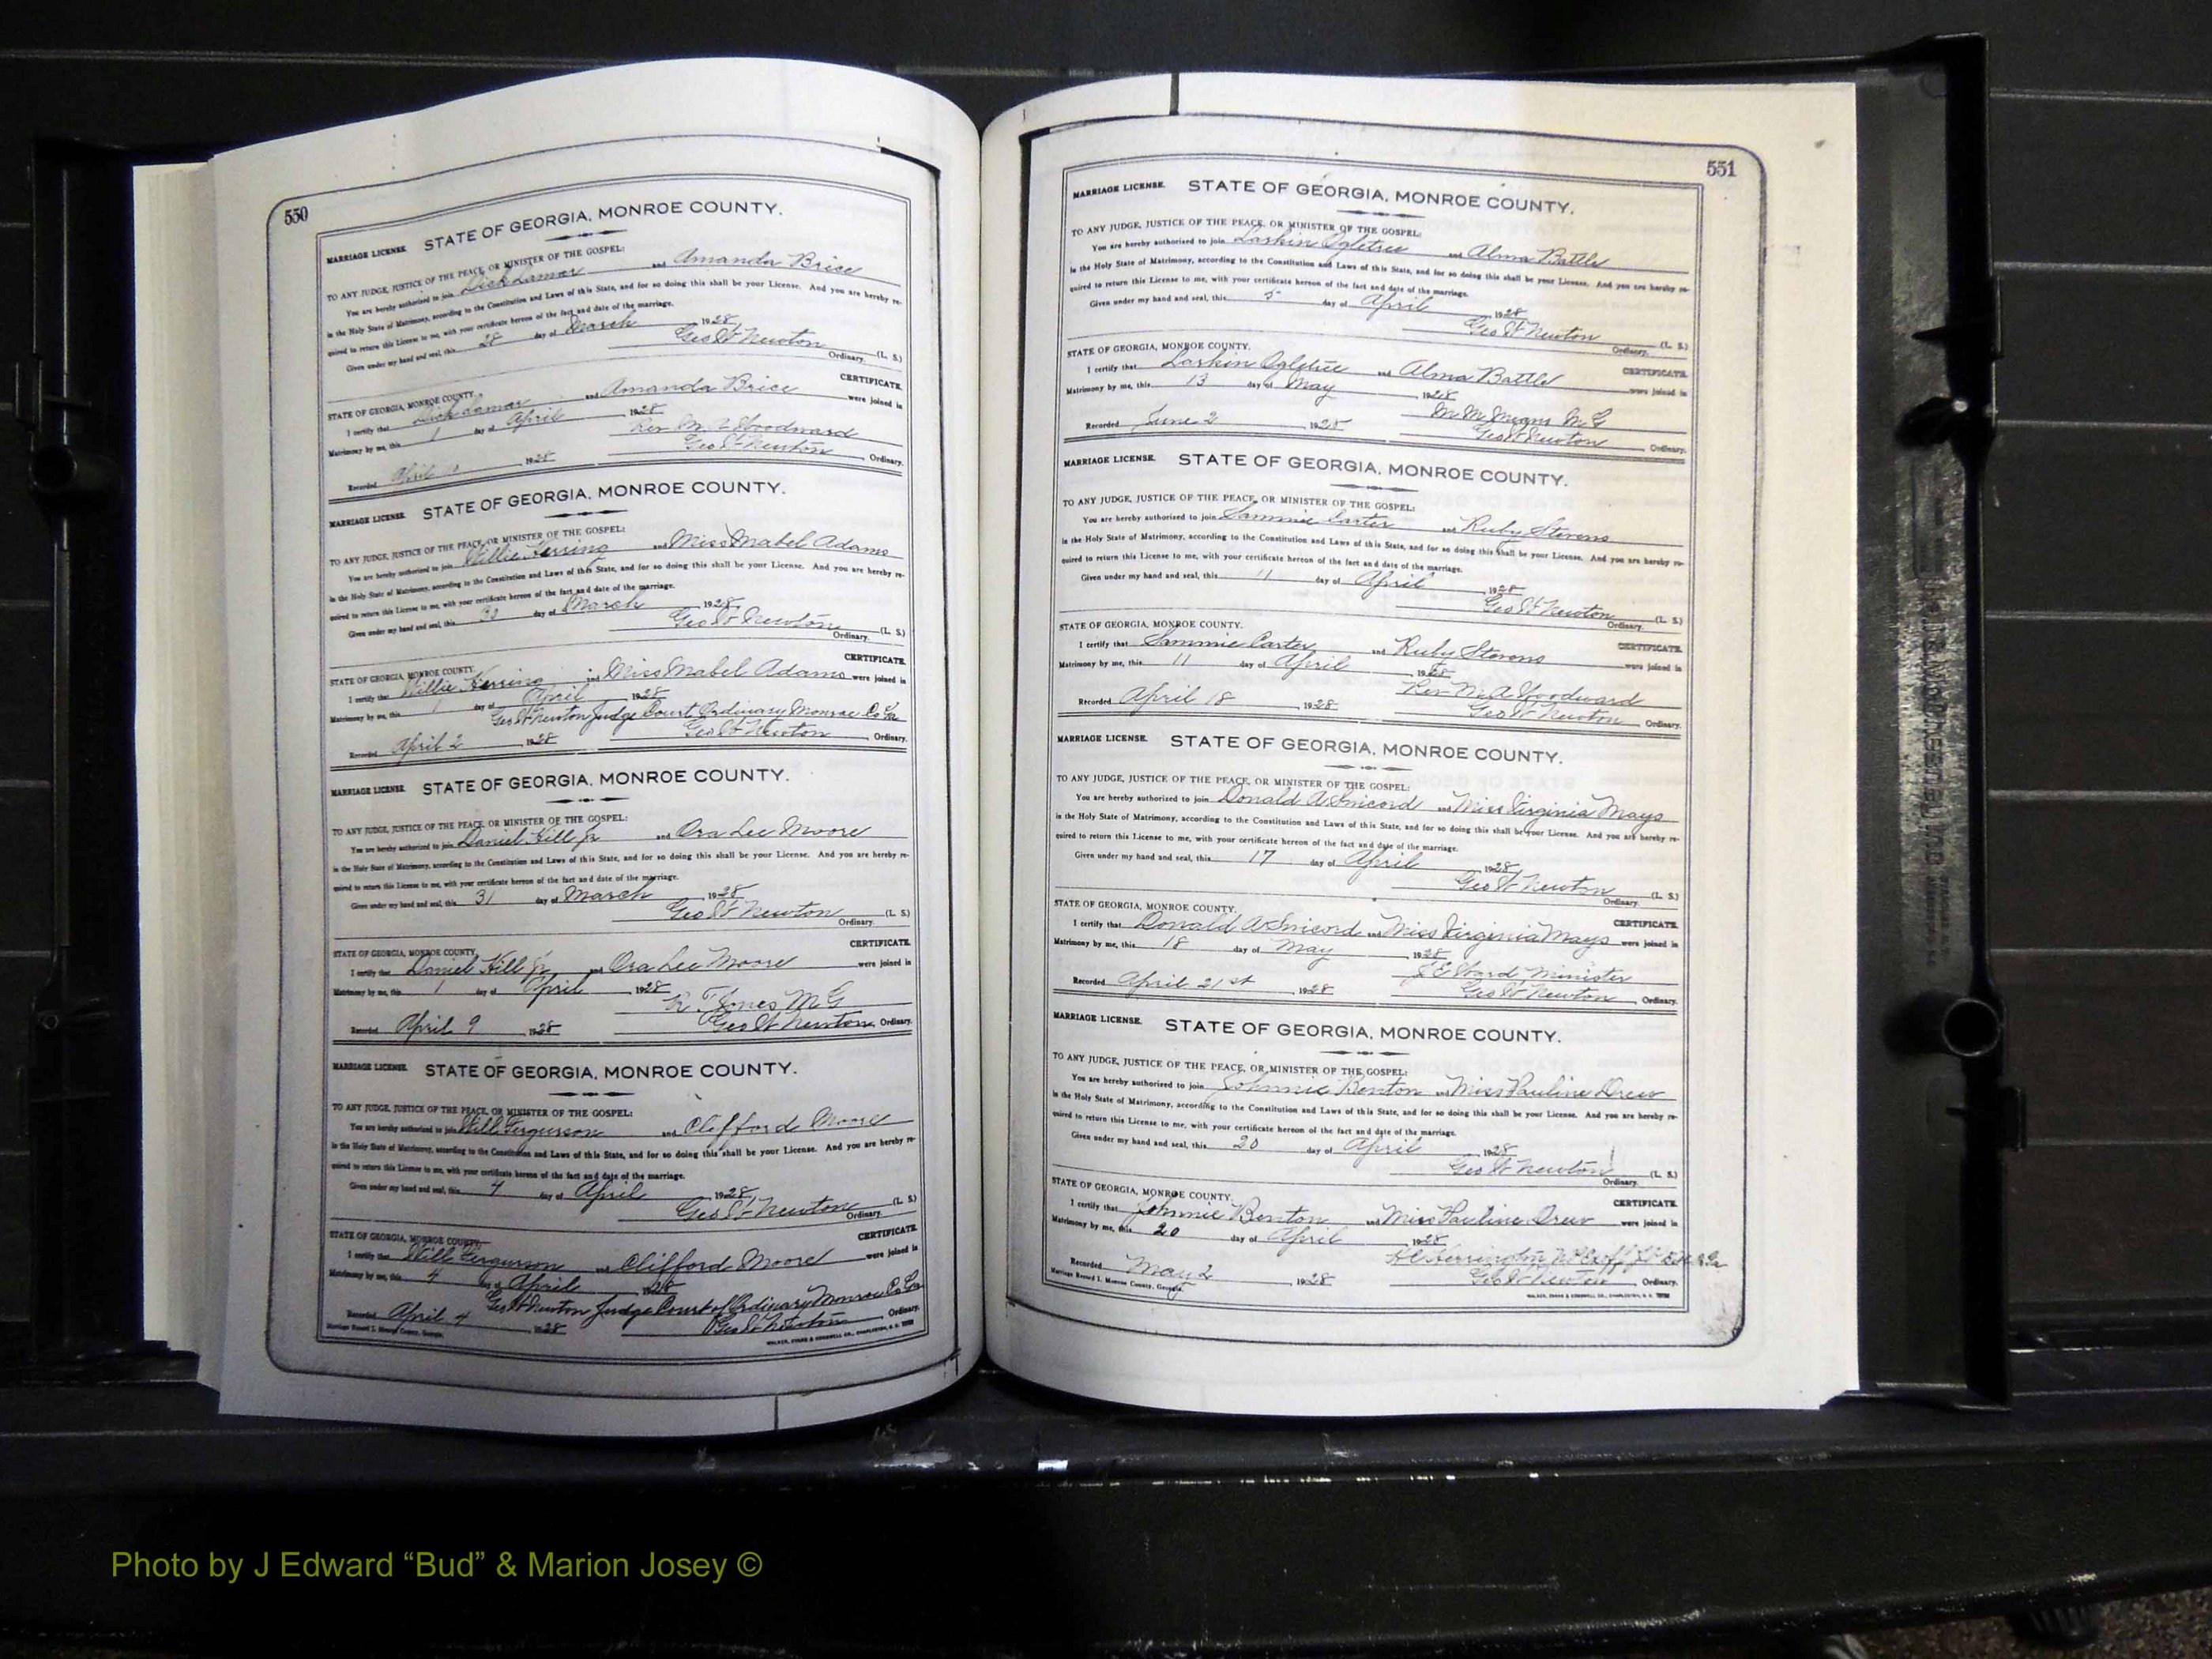 550
MARRIAGE LICENSE. STATE OF GEORGIA, MONROE COUNTY.
TO ANY JUDGE, JUSTICE OF THE PEACE, OR MINISTER OF THE GOSPEL:
You are hereby authorized to join Dick Lamar and Amanda Brice
in the Holy State of Matrimony, according to the Constitution and Laws of this State, and for so doing this shall be your License. And you are hereby re-
quired to return this License to me, with your certificate hereon of the fact and date of the marriage.
Given under my hand and seal, this 28 day of March 1928
Geo W Newton (L. S.)
Ordinary.
STATE OF GEORGIA, MONROE COUNTY. CERTIFICATE.
I certify that Dick Lamar and Amanda Brice were joined in
Matrimony by me, this 1 day of April 1928
Rev M. A Woodward
Recorded April 1928 Geo W Newton, Ordinary.
MARRIAGE LICENSE. STATE OF GEORGIA, MONROE COUNTY.
TO ANY JUDGE, JUSTICE OF THE PEACE, OR MINISTER OF THE GOSPEL:
You are hereby authorized to join Willie Herring and Miss Mabel Adams
in the Holy State of Matrimony, according to the Constitution and Laws of this State, and for so doing this shall be your License. And you are hereby re-
quired to return this License to me, with your certificate hereon of the fact and date of the marriage.
Given under my hand and seal, this 30 day of March 1928
Geo W Newton (L. S.)
Ordinary.
STATE OF GEORGIA, MONROE COUNTY. CERTIFICATE.
I certify that Willie Herring and Miss Mabel Adams were joined in
Matrimony by me, this 1 day of April 1928
Geo W Newton Judge Court Ordinary Monroe Co Ga
Recorded April 2 1928 Geo W Newton, Ordinary.
MARRIAGE LICENSE. STATE OF GEORGIA, MONROE COUNTY.
TO ANY JUDGE, JUSTICE OF THE PEACE, OR MINISTER OF THE GOSPEL:
You are hereby authorized to join Daniel Hill Jr and Ora Lee Moore
in the Holy State of Matrimony, according to the Constitution and Laws of this State, and for so doing this shall be your License. And you are hereby re-
quired to return this License to me, with your certificate hereon of the fact and date of the marriage.
Given under my hand and seal, this 31 day of March 1928
Geo W Newton (L. S.)
Ordinary.
STATE OF GEORGIA, MONROE COUNTY. CERTIFICATE.
I certify that Daniel Hill Jr and Ora Lee Moore were joined in
Matrimony by me, this 1 day of April 1928
R T Jones M G
Recorded April 9 1928 Geo W Newton, Ordinary.
MARRIAGE LICENSE. STATE OF GEORGIA, MONROE COUNTY.
TO ANY JUDGE, JUSTICE OF THE PEACE, OR MINISTER OF THE GOSPEL:
You are hereby authorized to join Will Fergurson and Clifford Moore
in the Holy State of Matrimony, according to the Constitution and Laws of this State, and for so doing this shall be your License. And you are hereby re-
quired to return this License to me, with your certificate hereon of the fact and date of the marriage.
Given under my hand and seal, this 4 day of April 1928
Geo W Newton (L. S.)
Ordinary.
STATE OF GEORGIA, MONROE COUNTY. CERTIFICATE.
I certify that Will Fergurson and Clifford Moore were joined in
Matrimony by me, this 4 day of April 1928
Geo W Newton Judge Court of Ordinary Monroe Co Ga
Recorded April 4 1928 Geo W Newton Ordinary.
Marriage Record I. Monroe County, Georgia. WALKER, EVANS & COGSWELL CO., CHARLESTON, S. C.
551
MARRIAGE LICENSE. STATE OF GEORGIA, MONROE COUNTY.
TO ANY JUDGE, JUSTICE OF THE PEACE, OR MINISTER OF THE GOSPEL:
You are hereby authorized to join Larkin Ogletree and Alma Battle
in the Holy State of Matrimony, according to the Constitution and Laws of this State, and for so doing this shall be your License. And you are hereby re-
quired to return this License to me, with your certificate hereon of the fact and date of the marriage.
Given under my hand and seal, this 5 day of April 1928
Geo W Newton (L. S.)
Ordinary.
STATE OF GEORGIA, MONROE COUNTY. CERTIFICATE.
I certify that Larkin Ogletree and Alma Battle were joined in
Matrimony by me, this 13 day of May 1928
M M Means M G
Recorded June 2 1928 Geo W Newton Ordinary.
MARRIAGE LICENSE. STATE OF GEORGIA, MONROE COUNTY.
TO ANY JUDGE, JUSTICE OF THE PEACE, OR MINISTER OF THE GOSPEL:
You are hereby authorized to join Sammie Carter and Ruby Stevens
in the Holy State of Matrimony, according to the Constitution and Laws of this State, and for so doing this shall be your License. And you are hereby re-
quired to return this License to me, with your certificate hereon of the fact and date of the marriage.
Given under my hand and seal, this 11 day of April 1928
Geo W Newton (L. S.)
Ordinary.
STATE OF GEORGIA, MONROE COUNTY. CERTIFICATE.
I certify that Sammie Carter and Ruby Stevens were joined in
Matrimony by me, this 11 day of April 1928
Rev M. A Woodward
Recorded April 18 1928 Geo W Newton, Ordinary.
MARRIAGE LICENSE. STATE OF GEORGIA, MONROE COUNTY.
TO ANY JUDGE, JUSTICE OF THE PEACE, OR MINISTER OF THE GOSPEL:
You are hereby authorized to join Donald A Smicord and Miss Virginia Mays
in the Holy State of Matrimony, according to the Constitution and Laws of this State, and for so doing this shall be your License. And you are hereby re-
quired to return this License to me, with your certificate hereon of the fact and date of the marriage.
Given under my hand and seal, this 17 day of April 1928
Geo W Newton (L. S.)
Ordinary.
STATE OF GEORGIA, MONROE COUNTY. CERTIFICATE.
I certify that Donald A Smicord and Miss Virginia Mays were joined in
Matrimony by me, this 18 day of May 1928
J E Ward Minister
Recorded April 21st 1928 Geo W Newton, Ordinary.
MARRIAGE LICENSE. STATE OF GEORGIA, MONROE COUNTY.
TO ANY JUDGE, JUSTICE OF THE PEACE, OR MINISTER OF THE GOSPEL:
You are hereby authorized to join Johnnie Benton and Miss Pauline Drew
in the Holy State of Matrimony, according to the Constitution and Laws of this State, and for so doing this shall be your License. And you are hereby re-
quired to return this License to me, with your certificate hereon of the fact and date of the marriage.
Given under my hand and seal, this 20 day of April 1928
Geo W Newton (L. S.)
Ordinary.
STATE OF GEORGIA, MONROE COUNTY. CERTIFICATE.
I certify that Johnnie Benton and Miss Pauline Drew were joined in
Matrimony by me, this 20 day of April 1928
H C Herrington
Recorded May 2 1928 Geo W Newton, Ordinary.
Marriage Record I. Monroe County, Georgia. WALKER, EVANS & COGSWELL CO., CHARLESTON, S. C.
Photo by J Edward “Bud” & Marion Josey ©